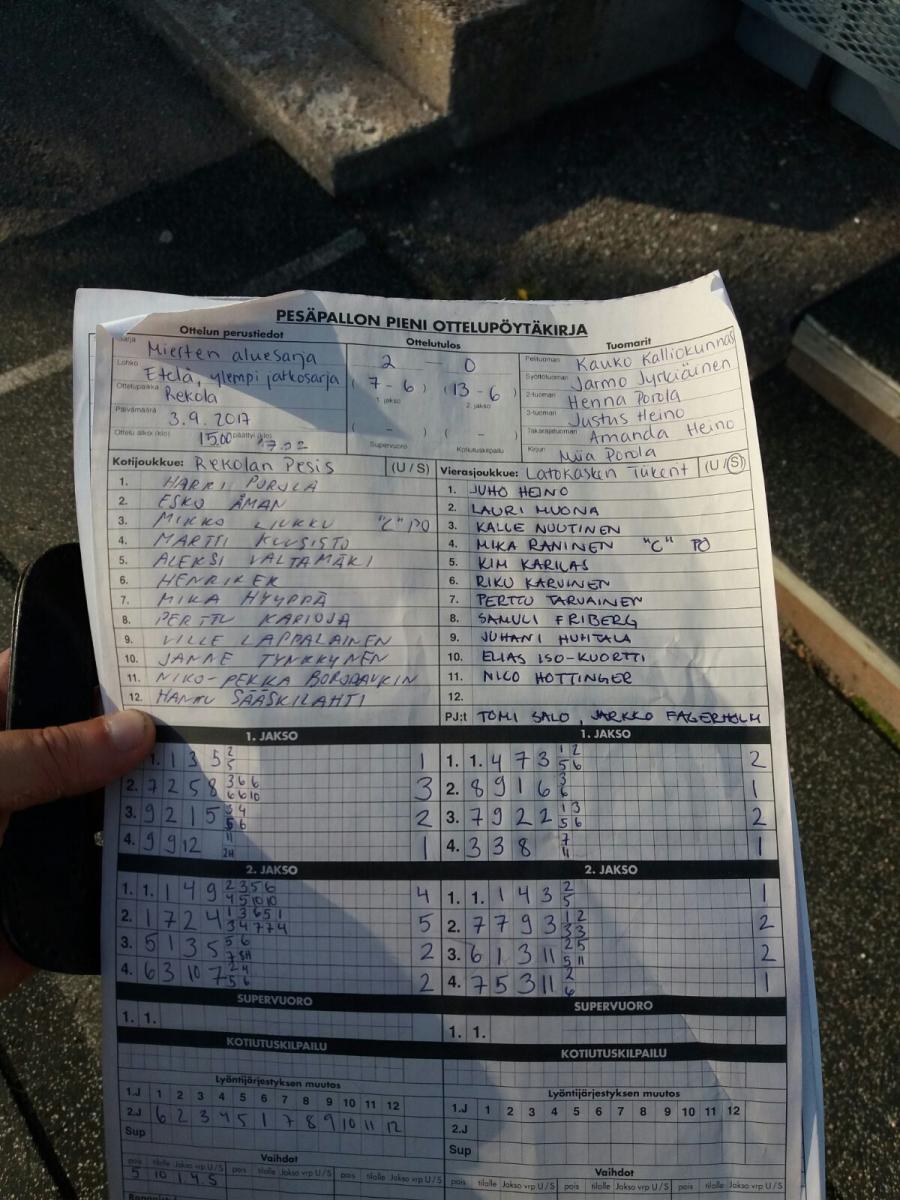 PESÄPALLON PIENI OTTELUPÖYTÄKIRJA
Ottelun perustiedot Ottelutulos Tuomarit
Sarja Miesten aluesarja
Lohko Etelä, ylempi jatkosarja
Ottelupaikka Rekola
Päivämäärä 3.9.2017
Ottelu alkoi (klo) 1500 päättyi (klo) 17.02
2 — 0
( 7 - 6 ) ( 13 - 6 )
1. jakso 2. jakso
( - ) ( - )
Supervuoro Kotiutuskilpailu
Pelituomari Kauko Kalliokunnas
Syöttötuomari Jarmo Jyrkiäinen
2-tuomari Henna Porola
3-tuomari Justus Heino
Takarajatuomari Amanda Heino
Kirjuri Miia Porola
Kotijoukkue: Rekolan Pesis (U / S)
1. HARRI POROLA
2. ESKO ÅMAN
3. MIKKO LIUKKU "C" PO
4. MARTTI KUUSISTO
5. ALEKSI VALTAMÄKI
6. HENRIK EK
7. MIKA HYYPPÄ
8. PERTTU KARIOJA
9. VILLE LAPPALAINEN
10. JANNE TYNKKYNEN
11. NIKO-PEKKA BORODAVKIN
12. HANNU SÄÄSKILAHTI
Vierasjoukkue: Latokasken Tükent (U / S)
1. JUHO HEINO
2. LAURI MUONA
3. KALLE NUUTINEN
4. MIKA RANINEN "C" PO
5. KIM KARILAS
6. RIKU KARVINEN
7. PERTTU TARVAINEN
8. SAMULI FRIBERG
9. JUHANI HUHTALA
10. ELIAS ISO-KUORTTI
11. NICO HOTTINGER
12.
PJ:t TOMI SALO, JARKKO FAGERHOLM
1. JAKSO 1. JAKSO
1. 1 3 5 2 5 1
2. 7 2 5 8 3 6 6 6 6 10 3
3. 9 2 1 5 3 4 5 6 2
4. 9 9 12 11 2H 1
1. 1. 4 7 3 1 2 5 6 2
2. 8 9 1 6 3 6 1
3. 7 9 2 2 1 3 5 6 2
4. 3 3 8 7 11 1
2. JAKSO 2. JAKSO
1. 1. 1 4 9 2 3 5 6 4 5 10 10 4
2. 1 7 2 4 1 3 6 5 1 3 4 7 7 4 5
3. 5 1 3 5 5 6 7 5H 2
4. 6 3 10 7 2 4 5 6 2
1. 1. 1 4 3 2 5 1
2. 7 7 9 3 1 2 3 3 2
3. 6 1 3 11 2 5 5 11 2
4. 7 5 3 11 2 6 1
SUPERVUORO SUPERVUORO
1. 1. 1. 1.
KOTIUTUSKILPAILU KOTIUTUSKILPAILU
Lyöntijärjestyksen muutos
1.J 1 2 3 4 5 6 7 8 9 10 11 12
2.J 6 2 3 4 5 1 7 8 9 10 11 12
Sup
Vaihdot
pois tilalle Jakso vrp U / S pois tilalle Jakso vrp U / S pois tilalle Jakso vrp U / S
5 10 1 4 S
Lyöntijärjestyksen muutos
1.J 1 2 3 4 5 6 7 8 9 10 11 12
2.J
Sup
Vaihdot
pois tilalle Jakso vrp U / S pois tilalle Jakso vrp U / S pois tilalle Jakso vrp U / S